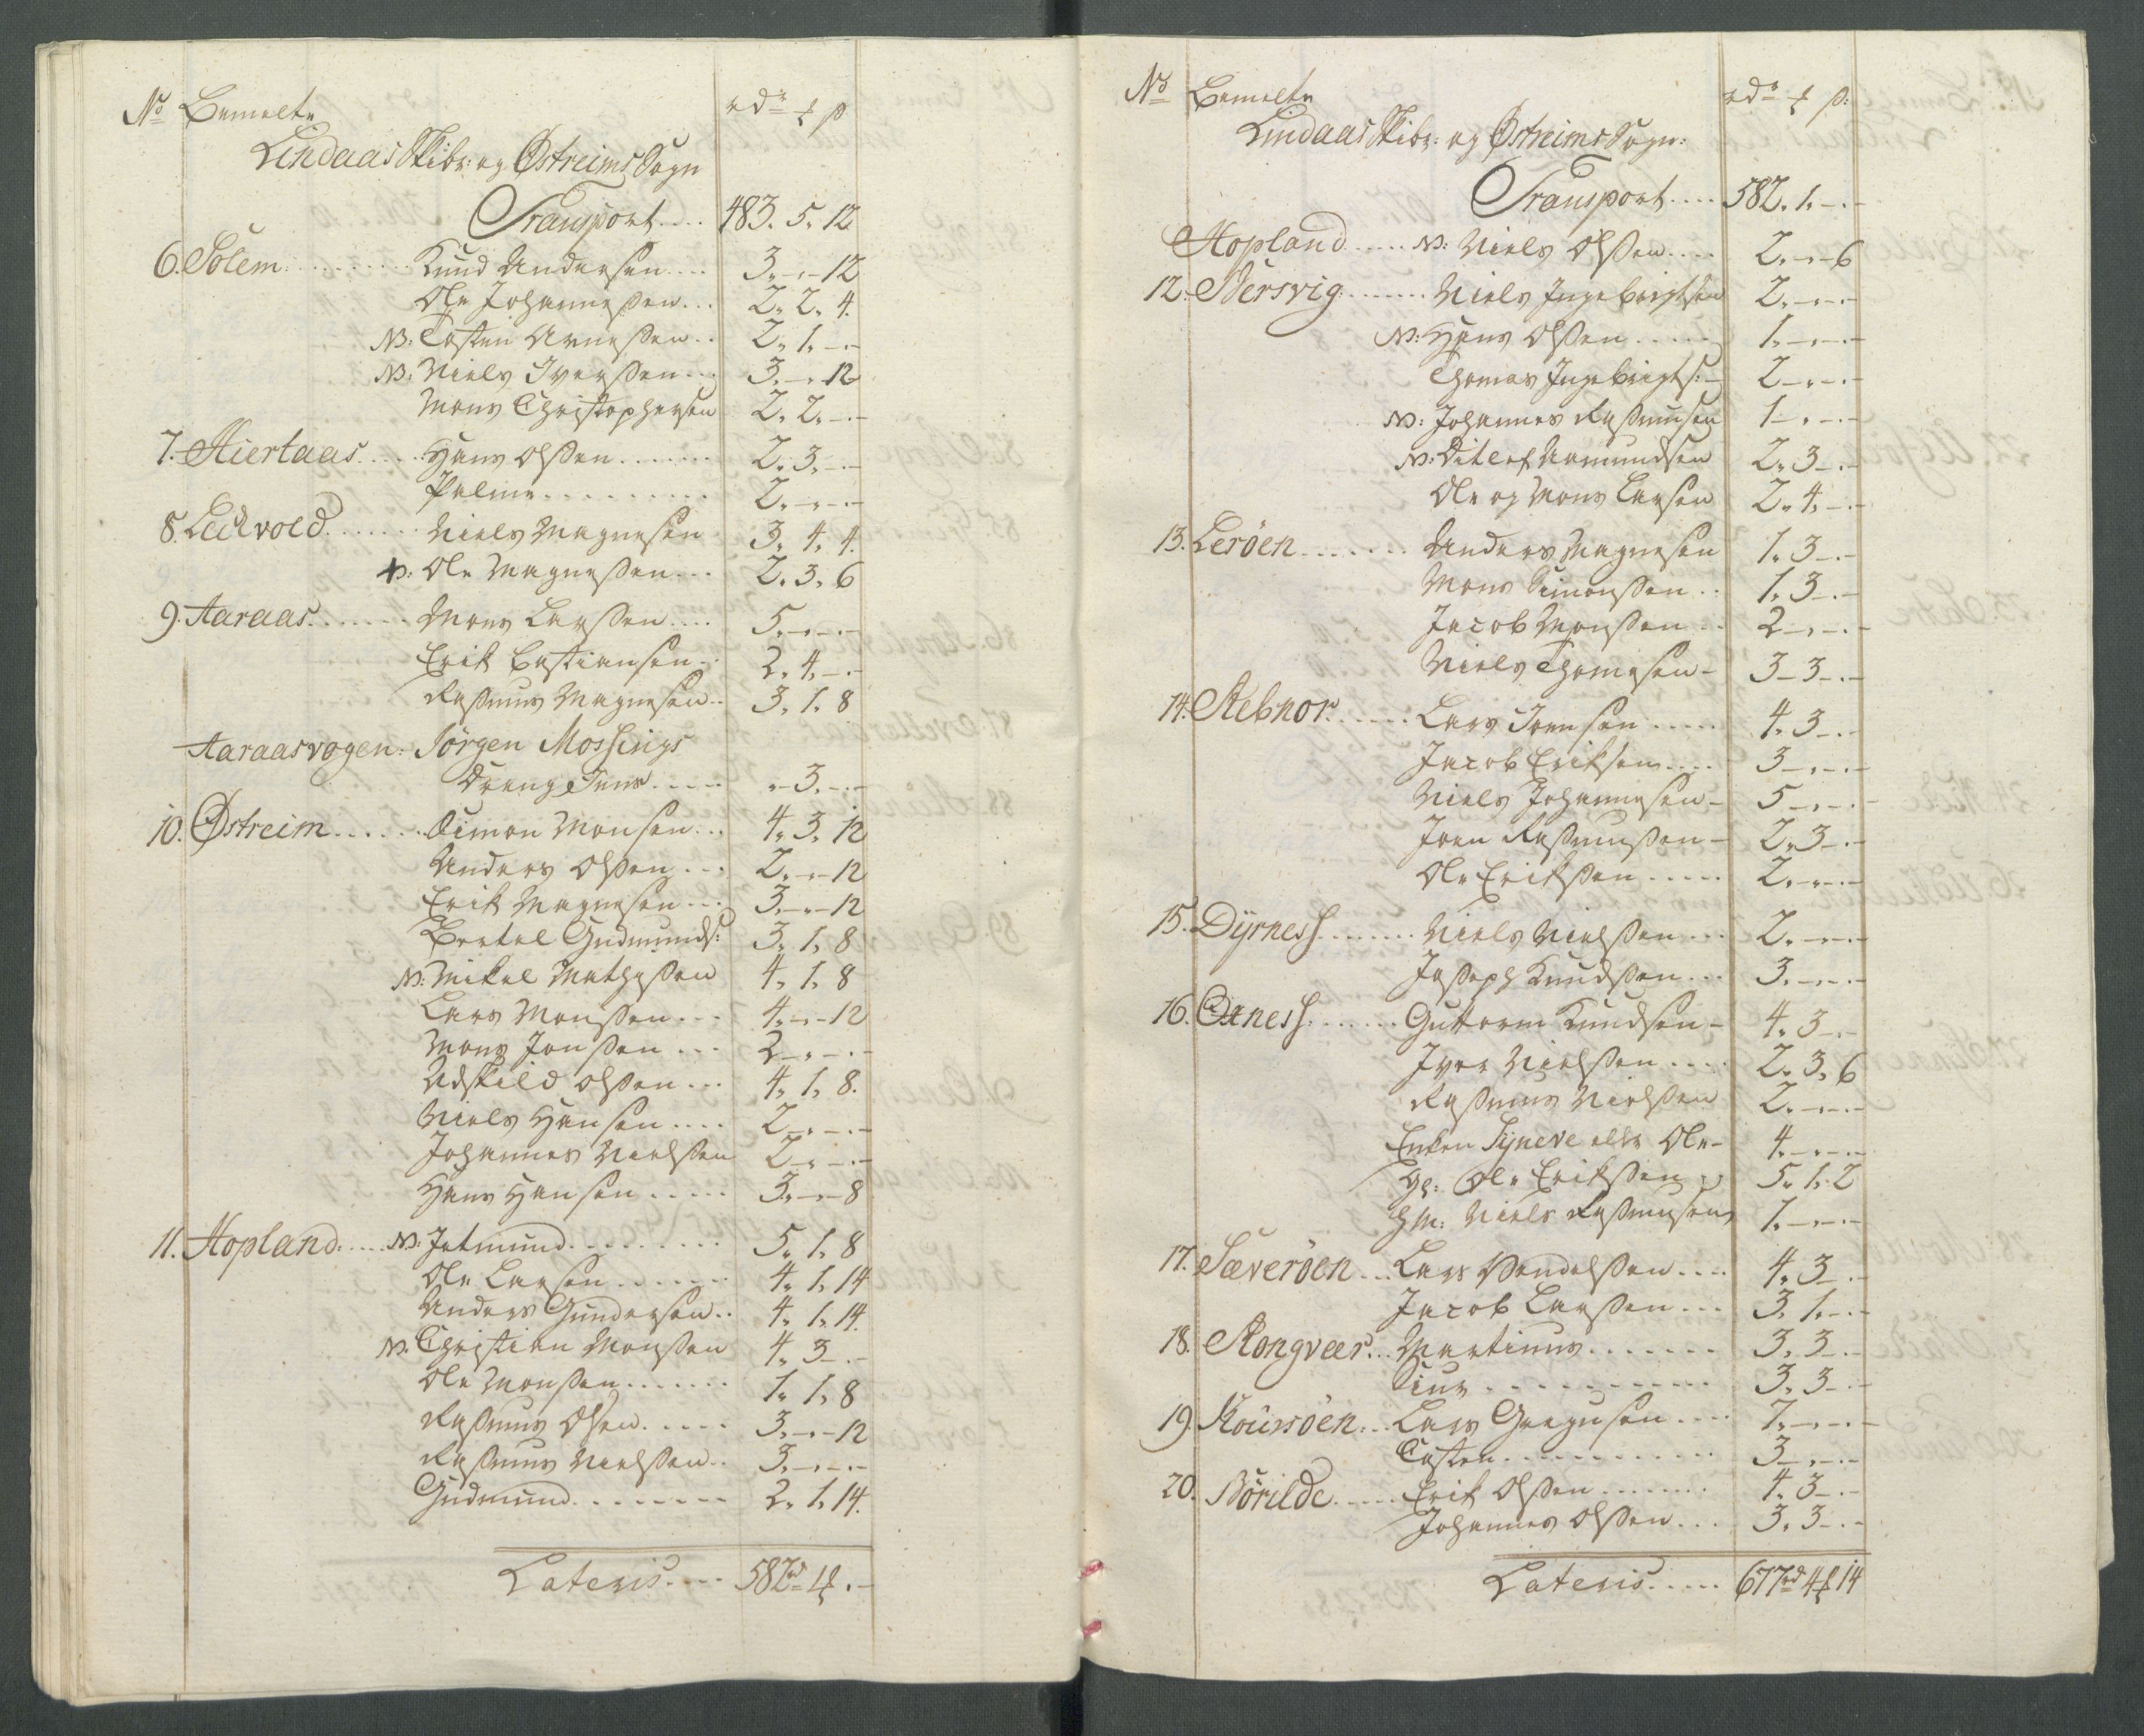 No Bemelte rdr ƭ ß
Lindaas Skibr: og Østreims Sogn
Transport .... 483. 5. 12
6. Solem ......... Knud Andersen .... 3. - . - 12
Ole Johannessen ... 2. 2. 4.
NB: Tosten Arnessen .. 2. 1. - . -
NB: Niels Iverssen ... 3. - . 12
Mons Christophersen 2. 2. - . -
7. Hiertaas .... Hans Olssen ....... 2. 3. - . -
Palme ......... 2. - . - . -
8. Leckvold ...... Niels Magnesen 3. 4. 4.
Ole Magnessen ... 2. 3. 6
9. Aaraas ...... Mons Larssen .... 5. - . - . -
Erik Bastiansen .. 2. 4. - . -
Rasmus Magnesen .. 3. 1. 8
Aaraasvogen: Jørgen Mossings
Dreng Jens ..... . - 3. - . -
10. Østreim ...... Simon Monsen ... 4. 3. 12
Anders Olssen ... 2. - . - 12
Erik Magnesen ... 3. - . - 12
Bertel Gudmunds: 3. 1. 8
NB: Mikel Mathissen 4. 1. 8
Lars Monssen ... 4. - . - 12
Mons Jonssen ... 2 - . - . -
Adskild Olssen ... 4. 1. 8.
Niels Hansen .... 2 - . - . -
Johannes Nielssen 2 - . - . -
Hans Hansen ..... 3. - . - 8
11. Hopland .... NB: Jetmund ......... 5. 1. 8
Ole Larsen ...... 4. 1. 14
Anders Gundersen .. 4. 1. 14.
NB: Christian Monssen 4. 3 - . -
Ole Monssen ....... 1. 1. 8
Rasmus Olsen ..... 3. - . - 12
Rasmus Nielssen .. 3. - . - . -
Gudmund ........ 2. 1. 14.
Lateris .... 582rd 1ƭ . -
No Bemelte rdr ƭ ß:
Lindaas Skibr: og Østreims Sogn:
Transport .... 582. 1. - . -
Hopland ..... NB: Niels Olssen .... 2. - . - 6
12. Nersvig ....... Niels Ingebrigtsen 2. - . - . -
NB: Hans Olssen ..... 1. - . - . -
Thomas Ingebrigts: - 2 - . - . -
NB: Johannes Rasmusen 1 - . - . -
NB: Ditlef Aamundsen 2. 3 - . -
Ole og Mons Larsen 2. 4. - . -
13. Lerøen ....... Anders Magnesen 1. 3 - . -
Mons Simonssen .. 1. 3 - . -
Jacob Monssen .. 2 - . - . -
Niels Thomesen - 3 - 3 - . -
14. Rebnor ...... Lars Iversen ..... 4. 3 - . -
Jacob Eriksen .... 3 - . - . -
Niels Johannesen - 5 - . - . -
Joen Rasmussen - 2. 3 - . -
Ole Erikssen ..... 2. - . - . -
15. Dyrness ....... Niels Nielssen ... 2. - . - . -
Joseph Knudssen ... 3. - . - . -
16. Oxness ....... Guttorm Knudsen - 4. 3 - . -
Iver Nielssen .... 2. 3. 6
Rasmus Nielssen 2. - . - . -
Enken Syneve eller Ole - 4. - . - . -
Ole Erikssen 5. 1. 2
Hm: Niels Rasmusen 1. - . - . -
17. Sæverøen ... Lars Vendelssen .... 4. 3 - . -
Jacob Larssen ... 3. 1. - . -
18. Kongveer ... Martinus ....... 3. 3 - . -
Siur ........... 3. 3 - . -
19. Roussøen ... Lars Gregusen .... 7. - . - . -
Tosten ........... 3 - . - . -
20. Børilde ..... Erik Olssen ....... 4. 3 - . -
Johannes Olssen ... 3. 3 - . -
Lateris ..... 677rd 4ƭ 14